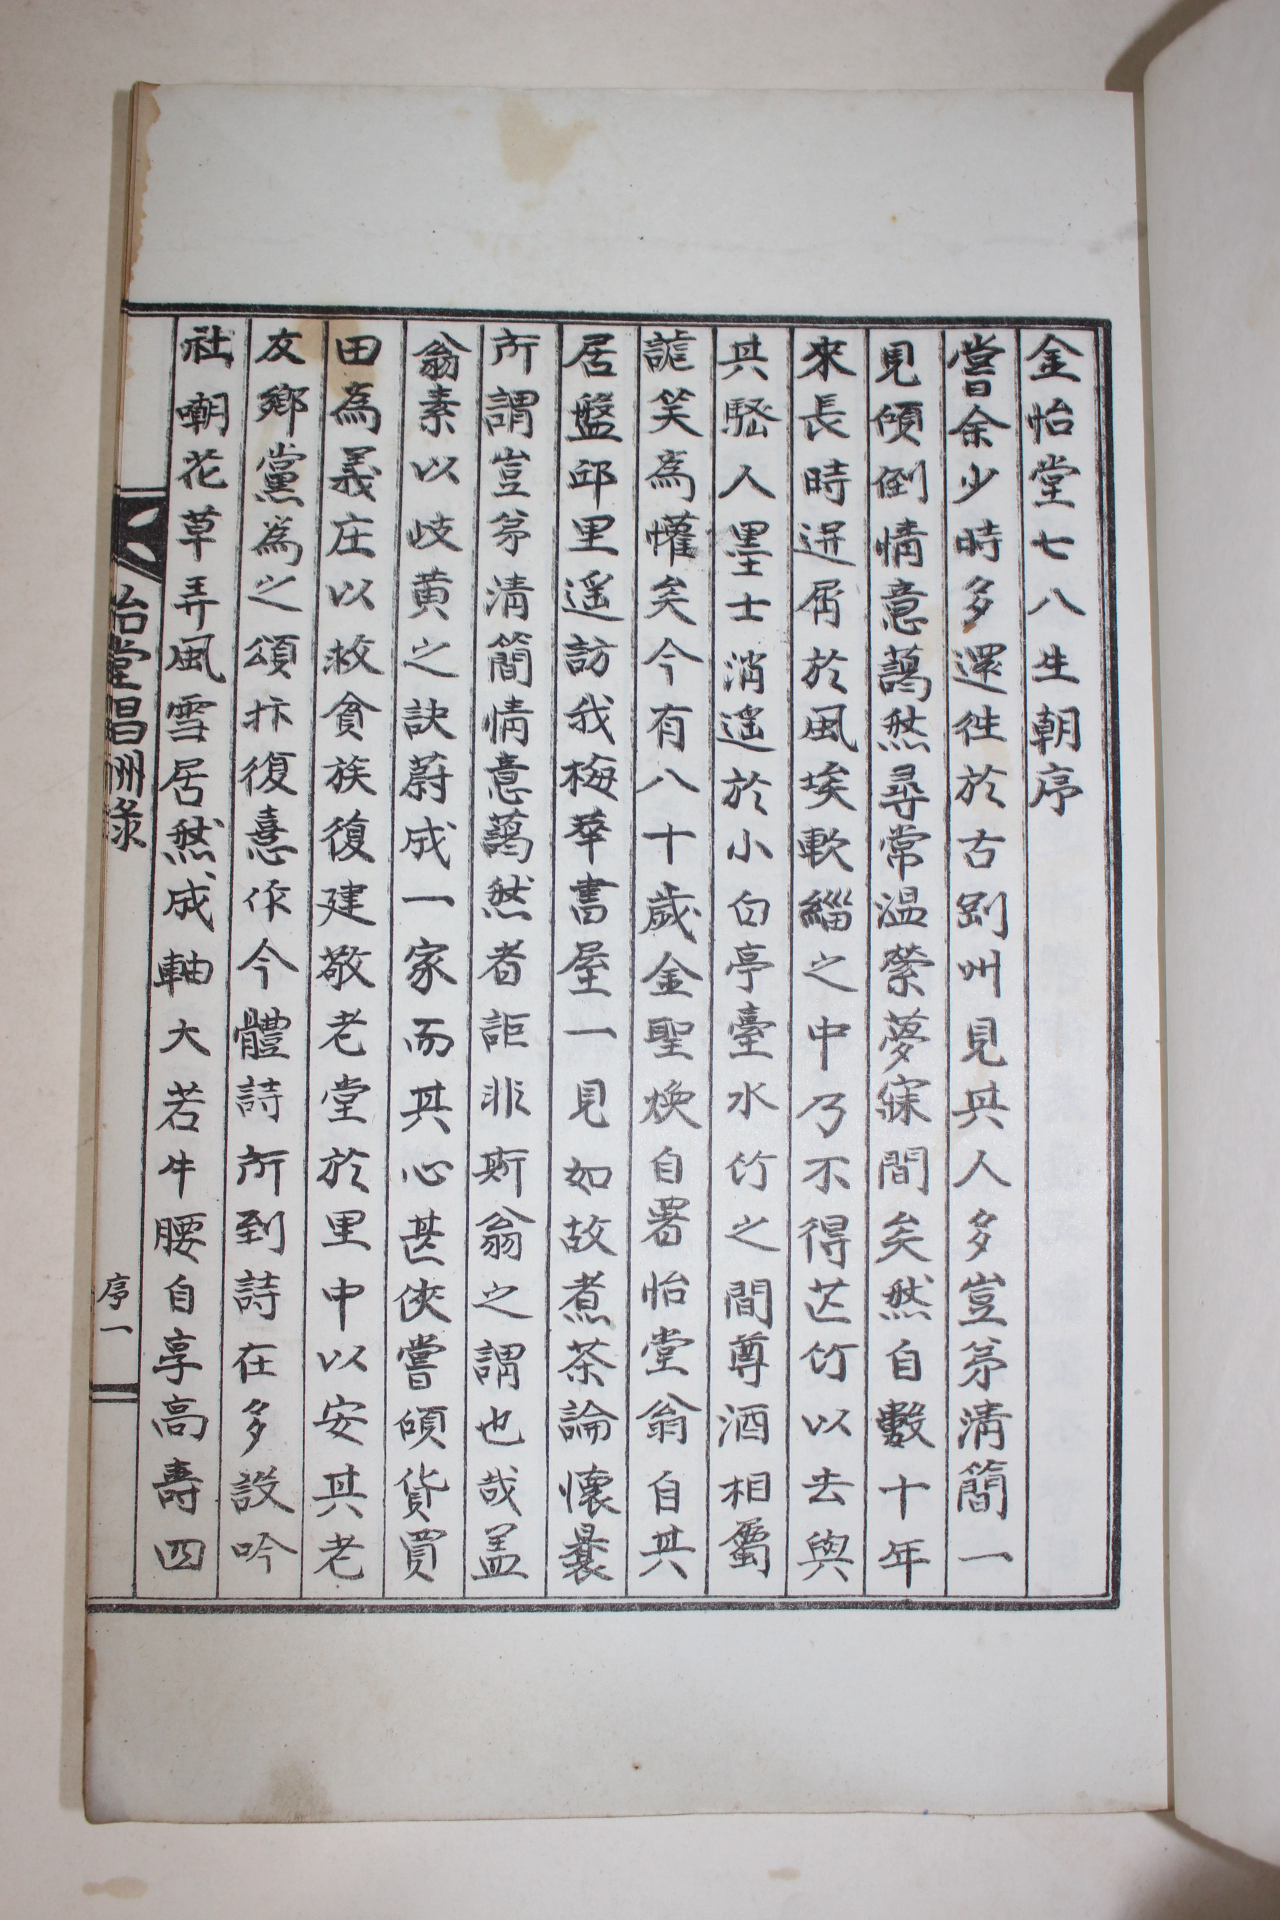 金怡堂七八生朝序
嘗余少時多還徃於古剡州見其人多豈弟淸簡一
見傾倒情意藹然尋常温縈夢寐間矣然自數十年
來長時迸屑於風埃軟緇之中乃不得芒竹以去與
其騷人墨士消遥於小白亭臺水竹之間尊酒相屬
謔笑爲懽矣今有八十歲金聖煥自署怡堂翁自其
居盤邱里遥訪我梅華書屋一見如故煮茶論懷曩
所謂豈弟淸簡情意藹然者詎非斯翁之謂也哉盖
翁素以岐黄之訣蔚成一家而其心甚俠嘗傾貨買
田為義庄以救貧族復建敬老堂於里中以安其老
友鄉黨為之頌抃復憙作今體詩所到詩在多設吟
社嘲花草弄風雪居然成軸大若牛腰自享高壽四
怡堂唱酬錄
序一